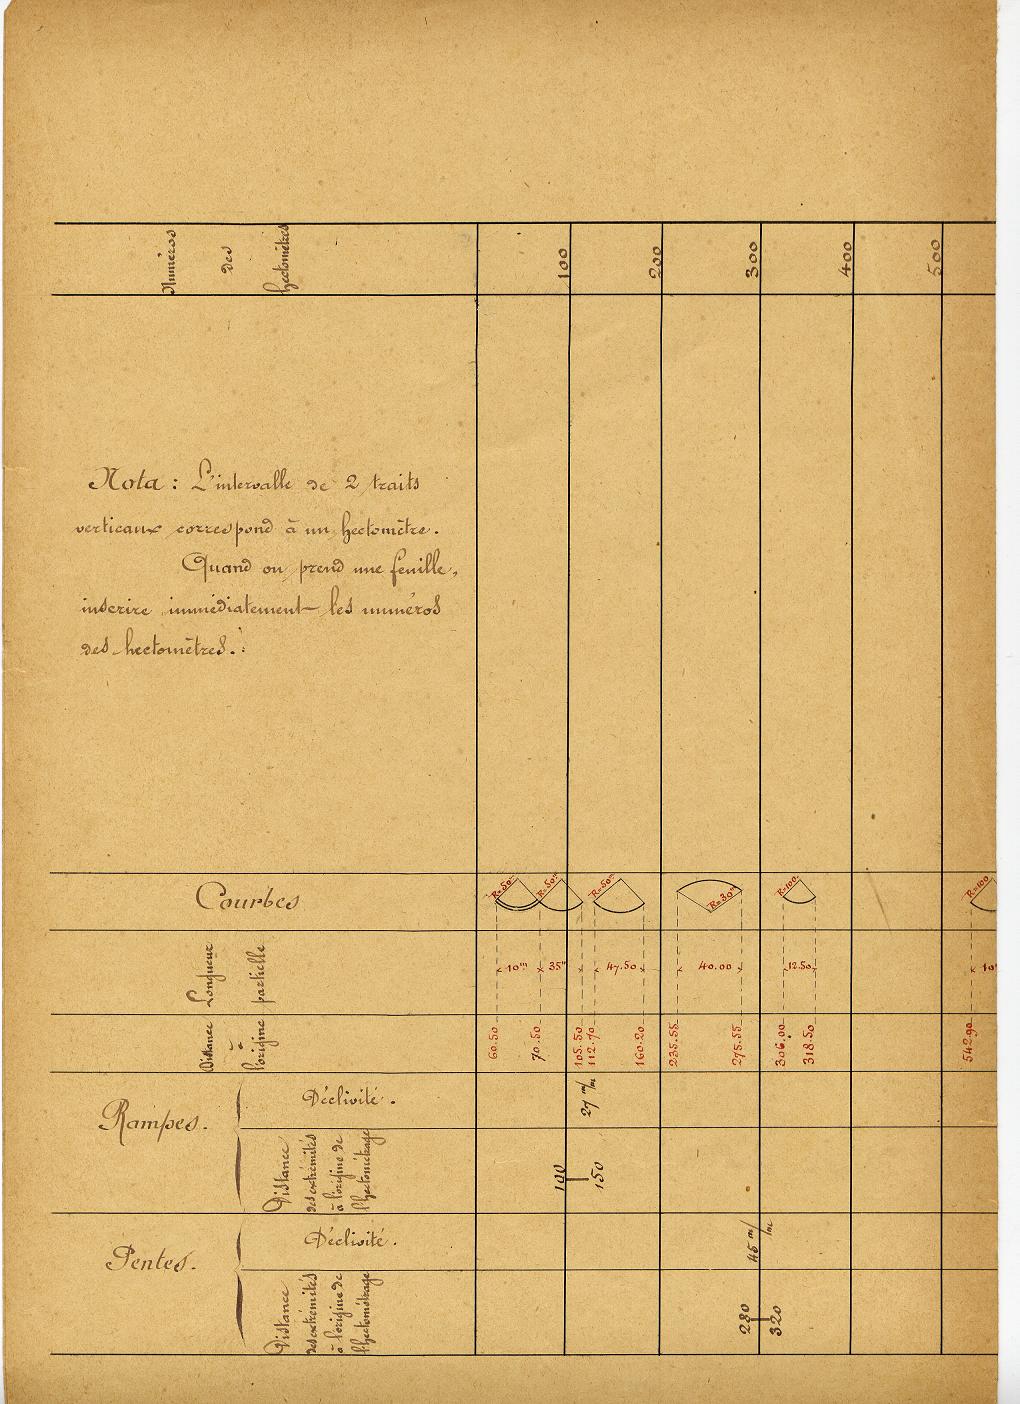 Numéros
des
hectomètres
100
200
300
400
500
Nota : L'intervalle de 2 traits
verticaux correspond à un hectomètre.
Quand on prend une feuille,
inscrire immédiatement les numéros
des hectomètres.
Courbes
R=50
R=50
R=50
R=30
R=100
R=100
Longueur
partielle
10m
35m
47.50
40.00
12.50
Distance
à
l'origine
60.50
70.50
105.50
112.70
160.20
235.55
275.55
306.00
318.50
542.90
Rampes.
Déclivité.
27 m/m
Distance
des extrémités
à l'origine de
l'hectométrage
100
150
Pentes.
Déclivité.
45 m/m
Distance
des extrémités
à l'origine de
l'hectométrage
280
320